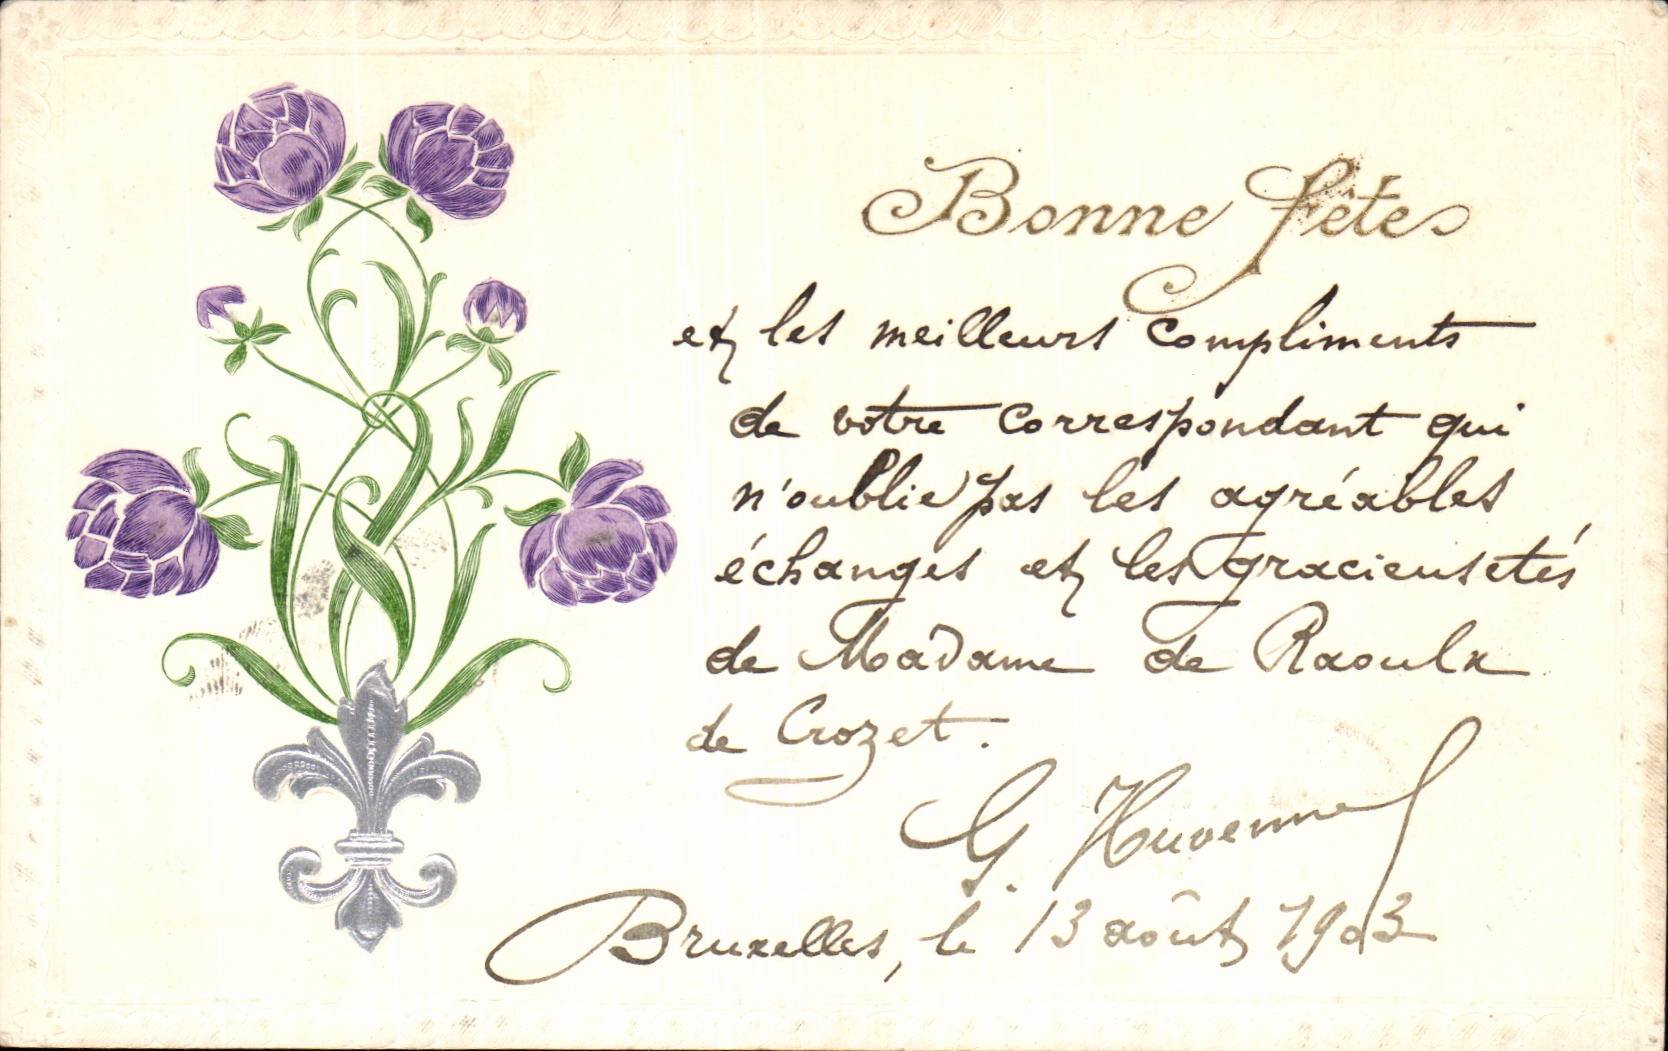 Bonne fête
et les meilleurs compliments
de votre correspondant qui
n'oublie pas les agréables
échanges et les gracieusetés
de Madame de Raoulx
de Crozet.
G. Huvenne
Bruxelles, le 13 août 1903